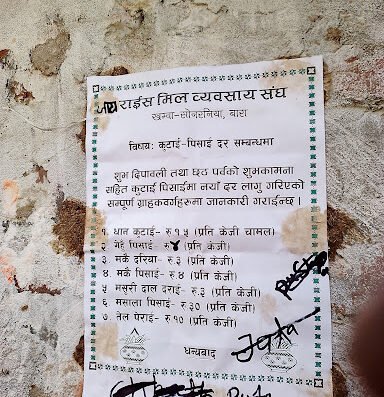 राईस मिल व्यवसाय संघ
खम्वा-सोनरनिया, बारा
विषय: कुटाई-पिसाई दर सम्बन्धमा
शुभ दिपावली तथा छठ पर्वको शुभकामना
सहित कुटाई पिसाईमा नयाँ दर लागु गरिएको
सम्पूर्ण ग्राहकवर्गहरुमा जानकारी गराईन्छ।
१. धान कुटाई- रु.१५ (प्रति केजी चामल)
२. गेहुँ पिसाई- रु.४ (प्रति केजी)
३. मकै दरिया- रु.३ (प्रति केजी)
४. मकै पिसाई- रु.४ (प्रति केजी)
५. मसुरी दाल दराई- रु.३ (प्रति केजी)
६. मसाला पिसाई- रु.३० (प्रति केजी)
७. तेल पेराई- रु.१० (प्रति केजी)
धन्यवाद